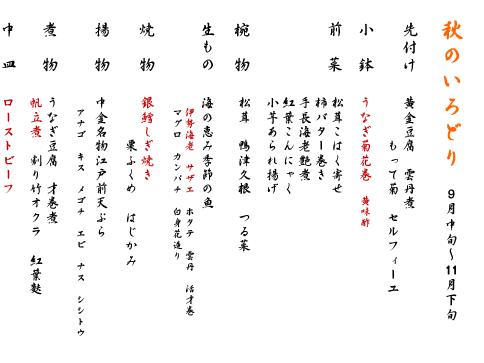 秋のいろどり　9月中旬～11月下旬
先付け　黄金豆腐　雲丹煮
もって菊　セルフィーユ
小鉢　うなぎ菊花巻　黄味酢
前菜　松茸こはく寄せ
柿バター巻き
手長海老艶煮
紅葉こんにゃく
小芋あられ揚げ
椀物　松茸　鴨津久根　つる菜
生もの　海の恵み季節の魚
伊勢海老　サザエ　ホタテ　雲丹　活才巻
マグロ　カンパチ　白身花造り
焼物　銀鱈しぎ焼き
栗ふくめ　はじかみ
揚物　中金名物江戸前天ぷら
アナゴ　キス　メゴチ　エビ　ナス　シシトウ
煮物　うなぎ豆腐　才巻煮
帆立煮　割り竹オクラ　紅葉麩
中皿　ローストビーフ